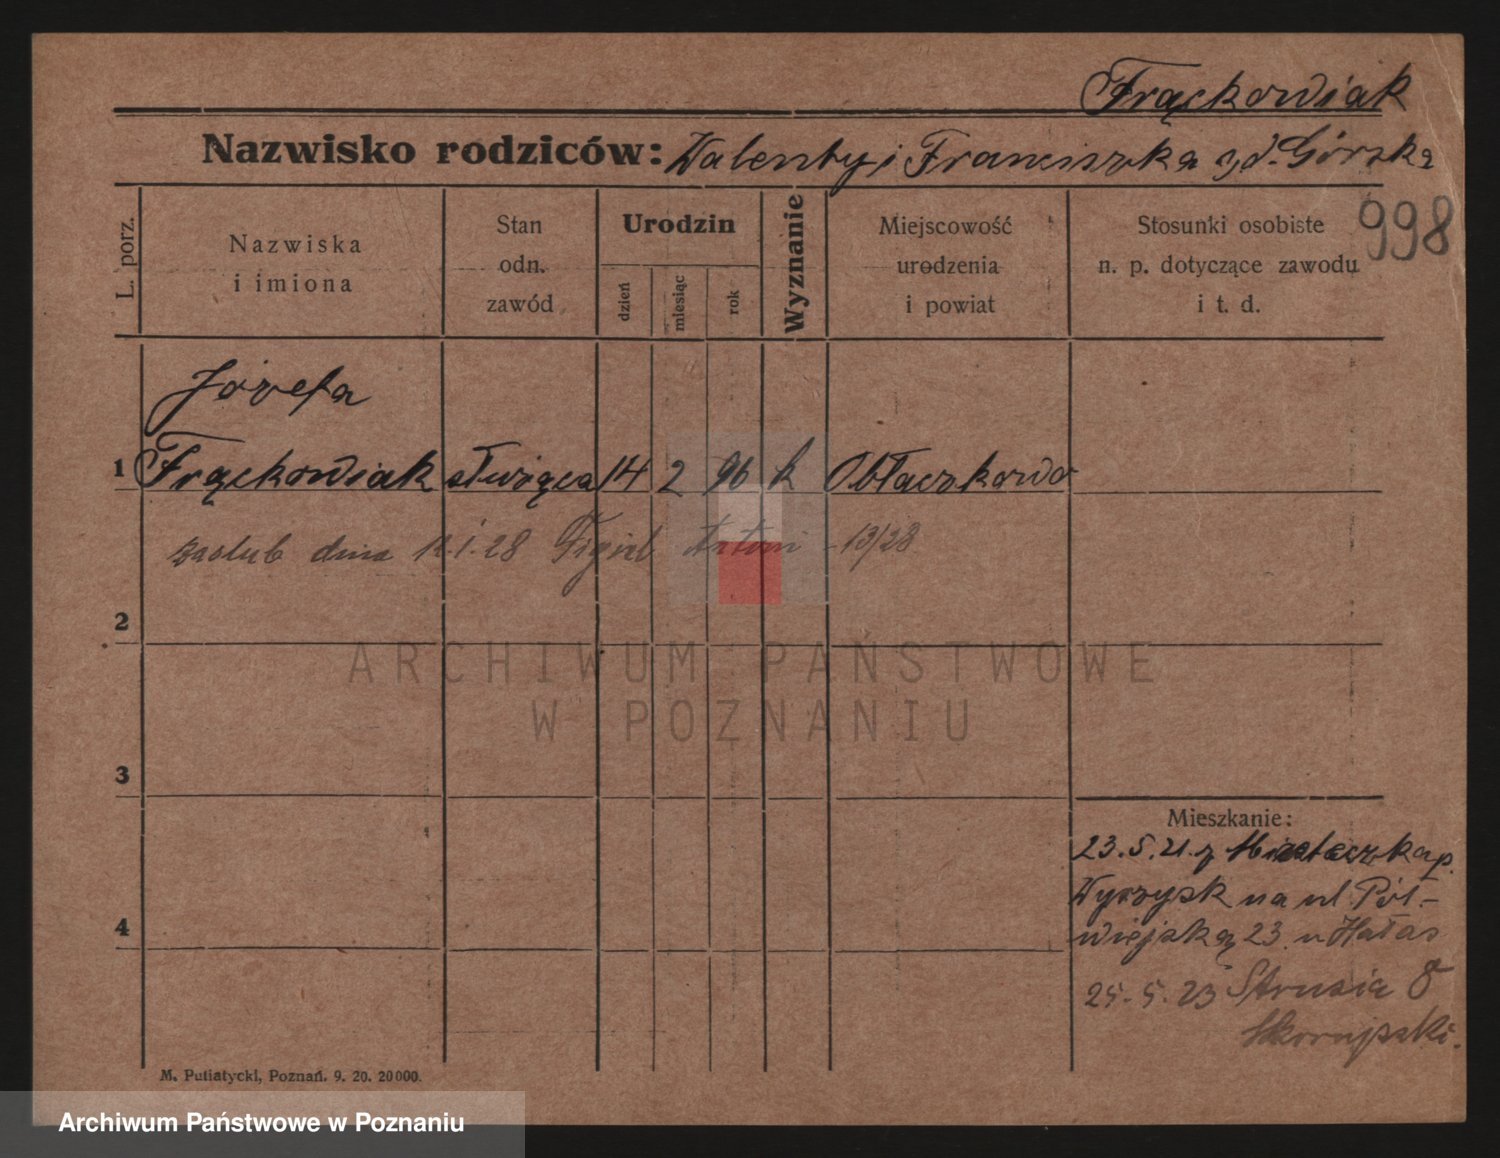 Frąckowiak
Nazwisko rodziców: Walenty i Franciszka zd. Górska
998
L. porz.
Nazwiska
i imiona
Stan
odn.
zawód
Urodzin
dzień
miesiąc
rok
Wyznanie
Miejscowość
urodzenia
i powiat
Stosunki osobiste
n. p. dotyczące zawodu
i t. d.
Józefa
1 Frąckowiak służąca 14 2 96 k Obłaczkowo
zaślub dnia 12.1.28 Figiel Antoni - 13/28
2
3
4
ARCHIWUM PAŃSTWOWE
W POZNANIU
Mieszkanie:
23.5.21. z Miasteczka p.
Wyrzysk na ul Pół-
wiejską 23 u Hałas
25.5.23 Strusia 8
M. Putiatycki, Poznań. 9. 20. 20000.
Archiwum Państwowe w Poznaniu